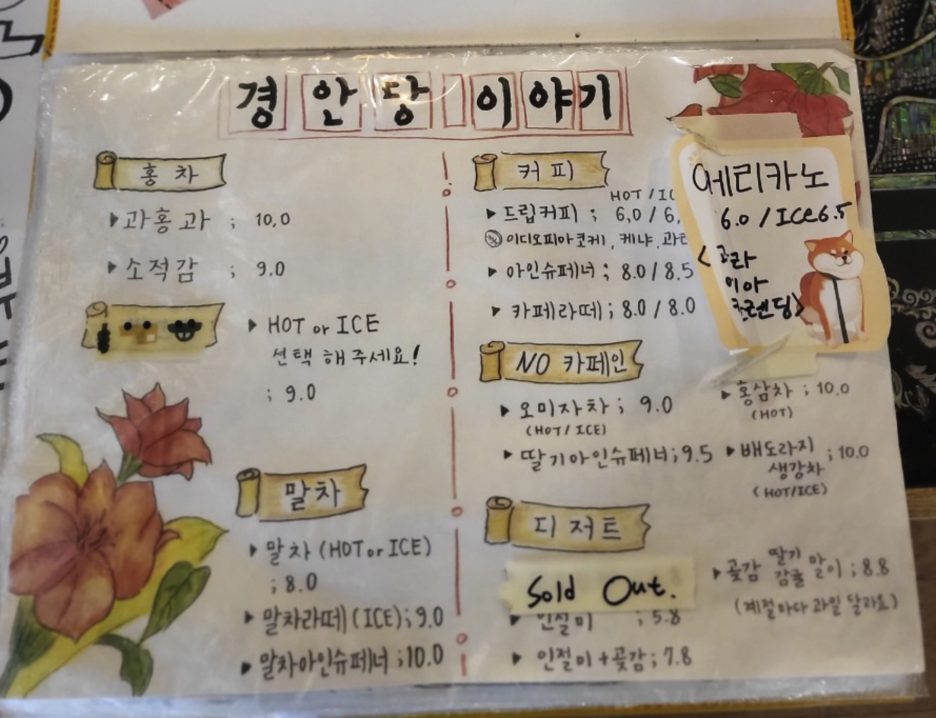 경안당 이야기
홍차
▶ 과홍과 ; 10,0
▶ 소적감 ; 9.0
▶ HOT or ICE
선택 해 주세요!
; 9.0
말차
▶ 말차 (HOT or ICE)
; 8.0
▶ 말차라떼 (ICE) ; 9.0
▶ 말차아인슈페너 ; 10.0
커피
HOT / IC
▶ 드립커피 ; 6,0 / 6,
이디오피아코케, 케냐, 과테
▶ 아인슈페너 ; 8.0 / 8.5
▶ 카페라떼 ; 8.0 / 8.0
아메리카노
6.0 / ICE 6.5
NO 카페인
▶ 오미자차 ; 9.0
(HOT / ICE)
▶ 딸기아인슈페너 ; 9.5
▶ 홍삼차 ; 10.0
(HOT)
▶ 배도라지
생강차 ; 10.0
(HOT/ICE)
디저트
Sold Out.
▶ 인절미 ; 5.8
▶ 인절미 + 곶감 ; 7.8
▶ 곶감 딸기 감귤 말이 ; 8.8
(계절마다 과일 달라요)